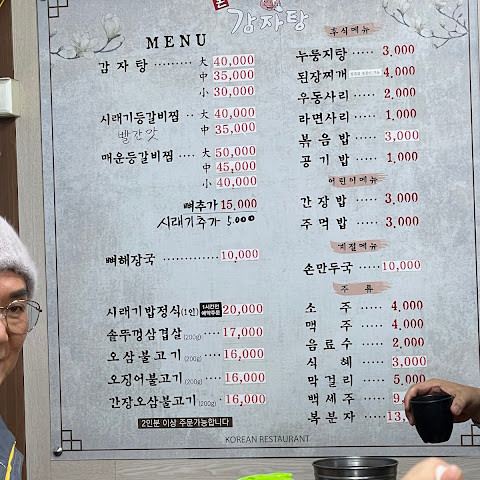 감자탕
MENU
감 자 탕 ········· 大 40,000
中 35,000
小 30,000
시래기등갈비찜 ·· 大 40,000
빨간맛 中 35,000
매운등갈비찜 ···· 大 50,000
中 45,000
小 40,000
뼈추가 15,000
시래기추가 5,000
뼈해장국 ············· 10,000
시래기밥정식(1인) 1시간전 예약주문 20,000
솥뚜껑삼겹살(200g) ···· 17,000
오삼불고기(200g) ···· 16,000
오징어불고기(200g) ···· 16,000
간장오삼불고기(200g) · 16,000
2인분 이상 주문가능합니다
후식메뉴
누룽지탕 ······ 3,000
된장찌개 4,000
우동사리 ······ 2,000
라면사리 ······ 1,000
볶 음 밥 ······ 3,000
공 기 밥 ······ 1,000
어린이메뉴
간 장 밥 ······ 3,000
주 먹 밥 ······ 3,000
계절메뉴
손만두국 ······ 10,000
주 류
소 주 ······ 4,000
맥 주 ······ 4,000
음 료 수 ······ 2,000
식 혜 ······ 3,000
막 걸 리 ······ 5,000
백 세 주 ······ 9,
복 분 자 ······ 13,
KOREAN RESTAURANT